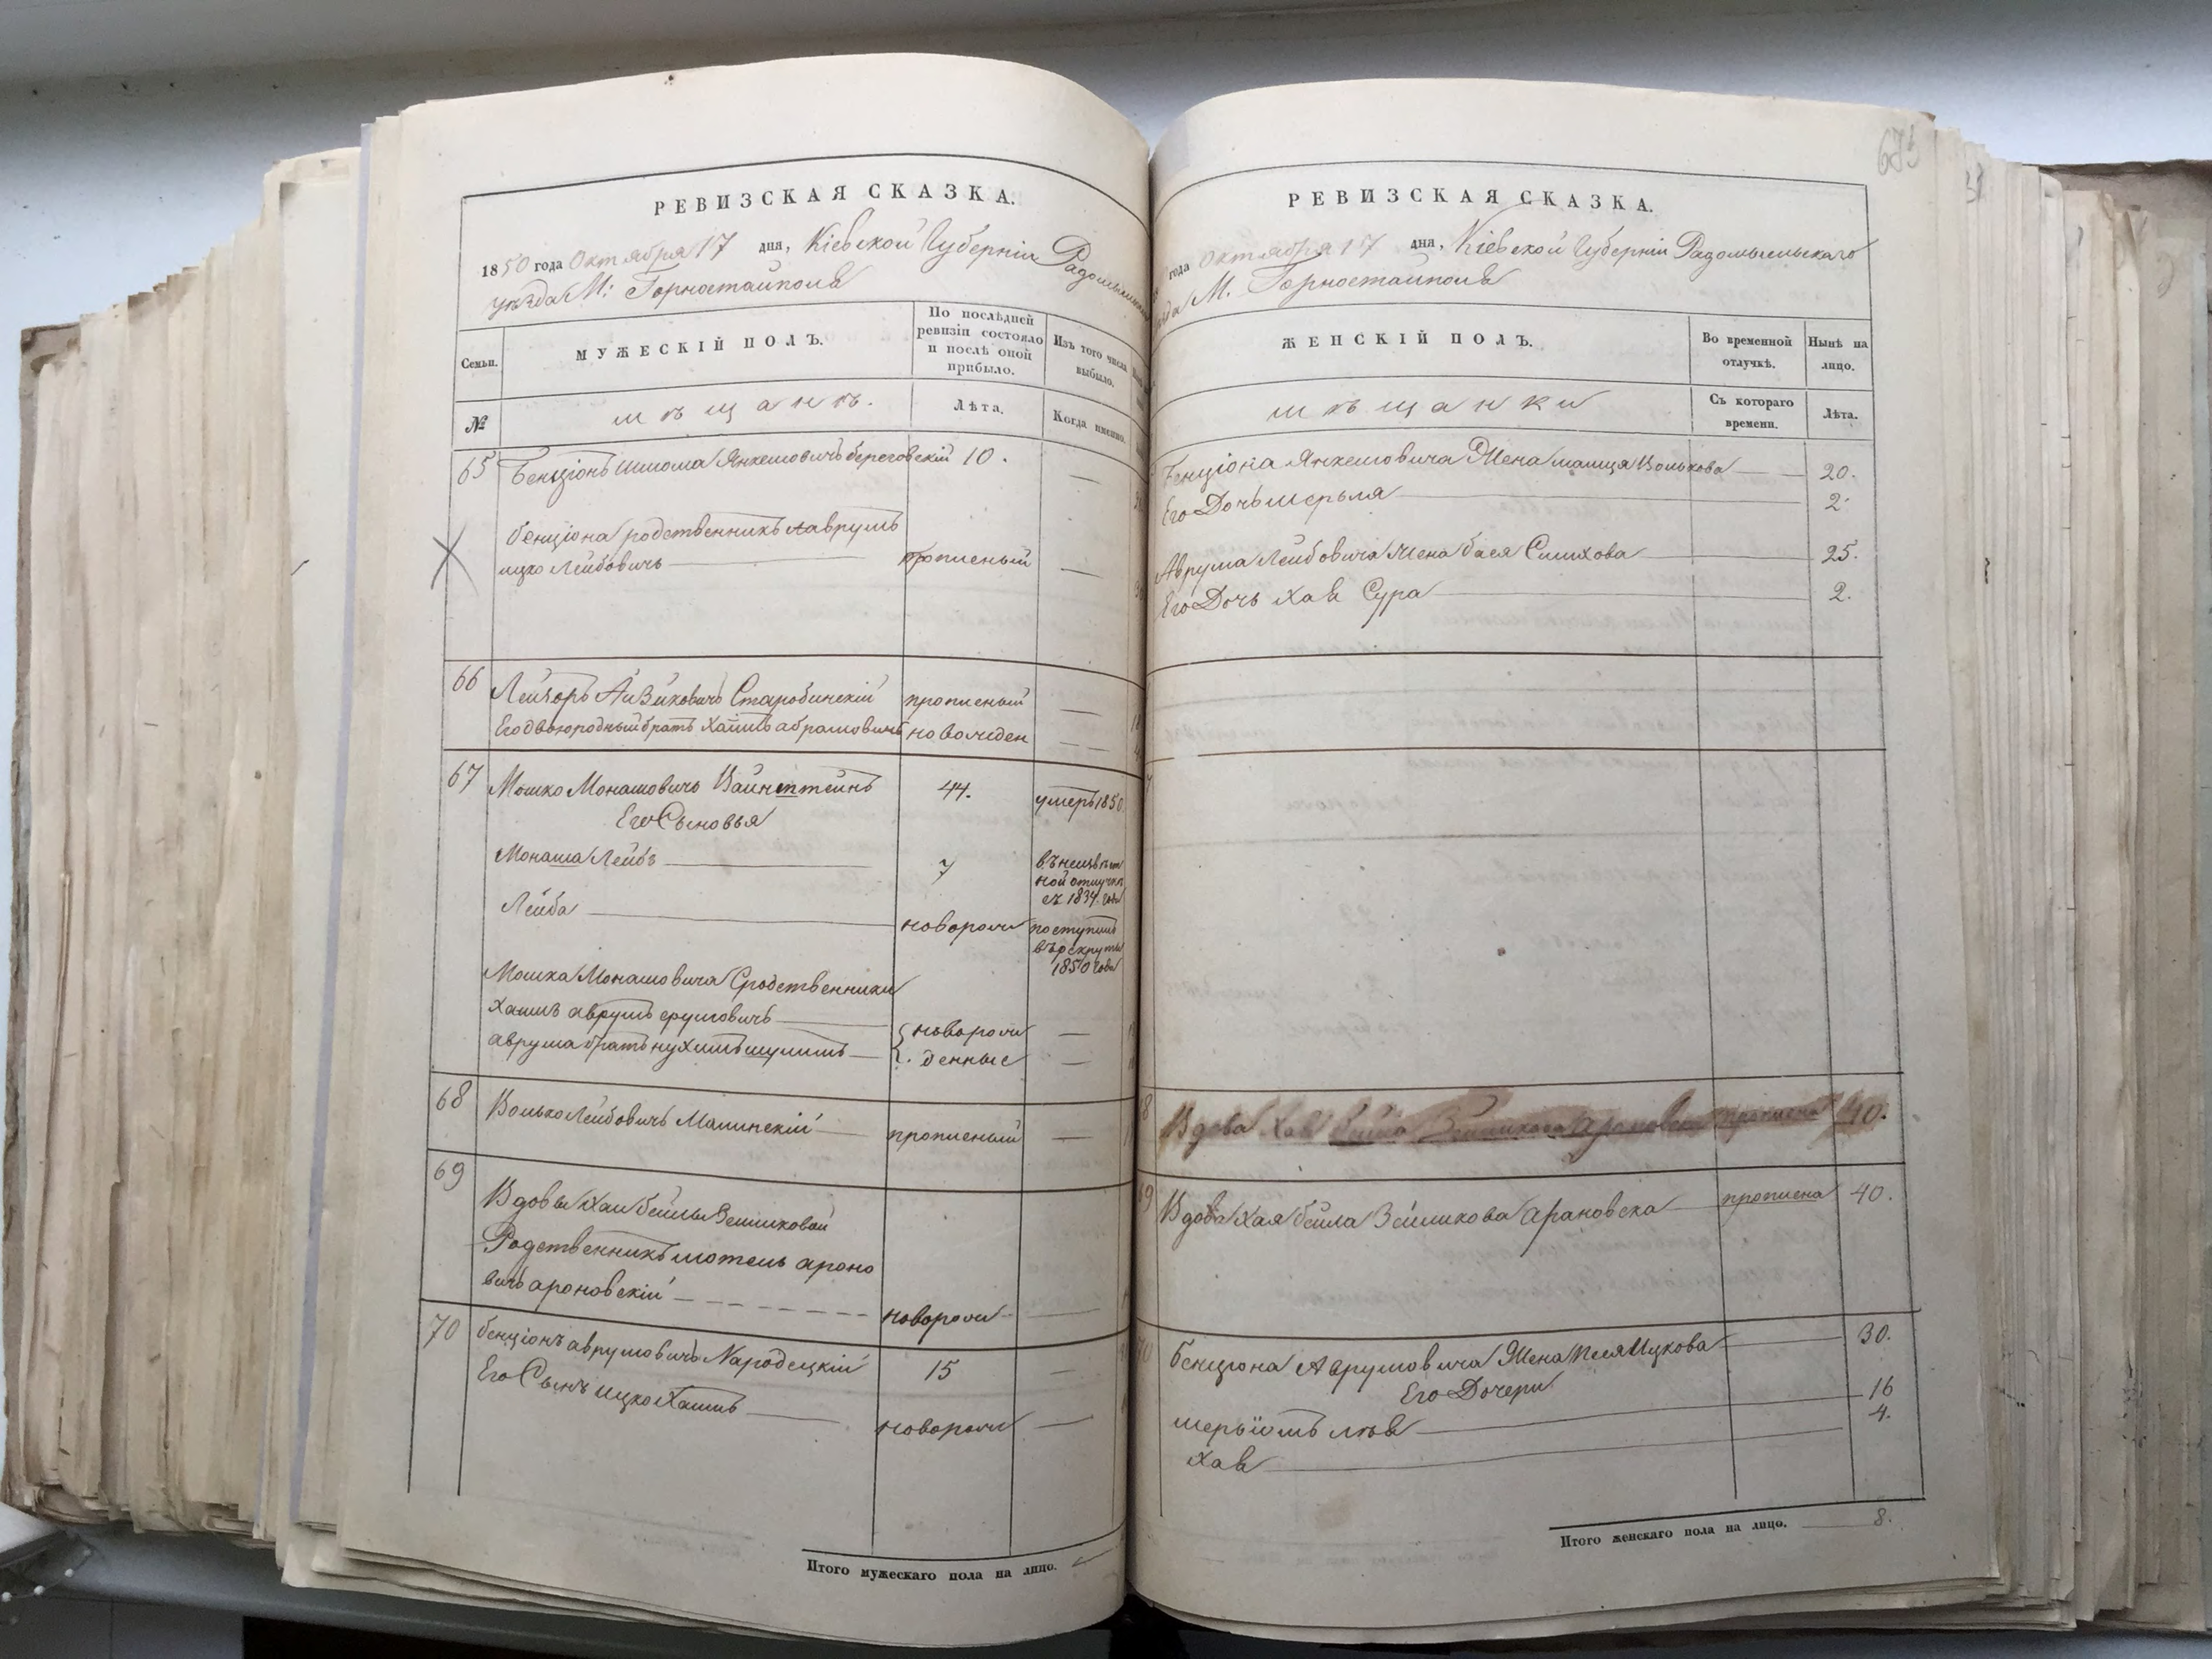 РЕВИЗСКАЯ СКАЗКА.
1850 года Октября 17 дня, Кіевской Губерніи Радомысльскаго
уѣзда М: Горностайполя
Семьи.
МУЖЕСКІЙ ПОЛЪ.
По послѣдней ревизіи состояло и послѣ оной прибыло.
Изъ того числа выбыло.
№
мѣщанъ.
Лѣта.
Когда именно.
65 Бенціонъ Шлома Янкелювичъ береговскій 10. —
бенціона родственникъ Аврумъ
ицко Лейбовичъ — прописный —
66 Лейзоръ Айзиковичъ Старобинскій прописный —
Его двоюродный брат Хаимъ абрамовичъ новорожден — —
67 Мошко Монашовичъ Вайнштейнъ 44. умеръ 1850.
Его Сыновья
Монаша Лейбъ — 7 въ неизвѣст
ной отлучкѣ
съ 1834 года
Лейба — новорож поступилъ
въ рекруты
1850 года
Мошка Монашовича Сродственники
Хаимъ аврумъ срулювичъ — новорож —
аврума братъ нухимъ шулимъ — денные —
68 Волько Лейбовичъ Малинскій — прописный —
69 Вдовы Хаи бейлы Зейликовой
Родственникъ мотель ароно
вичъ ароновскій — новорож —
70 бенціонъ аврумовичъ Народецкій 15 —
Его Сынъ ицко Хаимъ — новорож —
Итого мужескаго пола на лицо.
РЕВИЗСКАЯ СКАЗКА.
года Октября 17 дня, Кіевской Губерніи Радомысльскаго
М. Горностайполя
ЖЕНСКІЙ ПОЛЪ.
Во временной отлучкѣ.
Нынѣ на лицо.
мѣщанки
Съ котораго времени.
Лѣта.
Бенціона Янкелювича Жена малця Волькова — 20.
Его Дочь шерля — 2.
Аврума Лейбовича Жена бася Симхова — 25.
Его Дочь Хая Сура — 2.
Вдова Хая бейла Зейликова ароновска прописна 40.
69 Вдова Хая бейла Зейликова арановска — прописна 40.
Бенціона Аврумовича Жена песя Ицкова — 30.
Его Дочери
— 16
Хая — 4.
Итого женскаго пола на лицо. — 8.